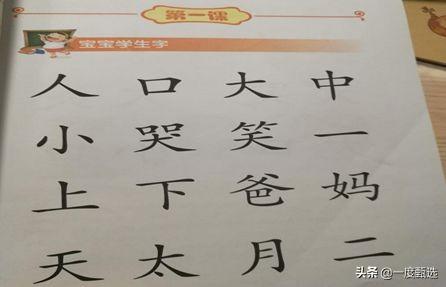 第一课
宝宝学生字
人 口 大 中
小 哭 笑 一
上 下 爸 妈
天 太 月 二
头条 @一度甄选